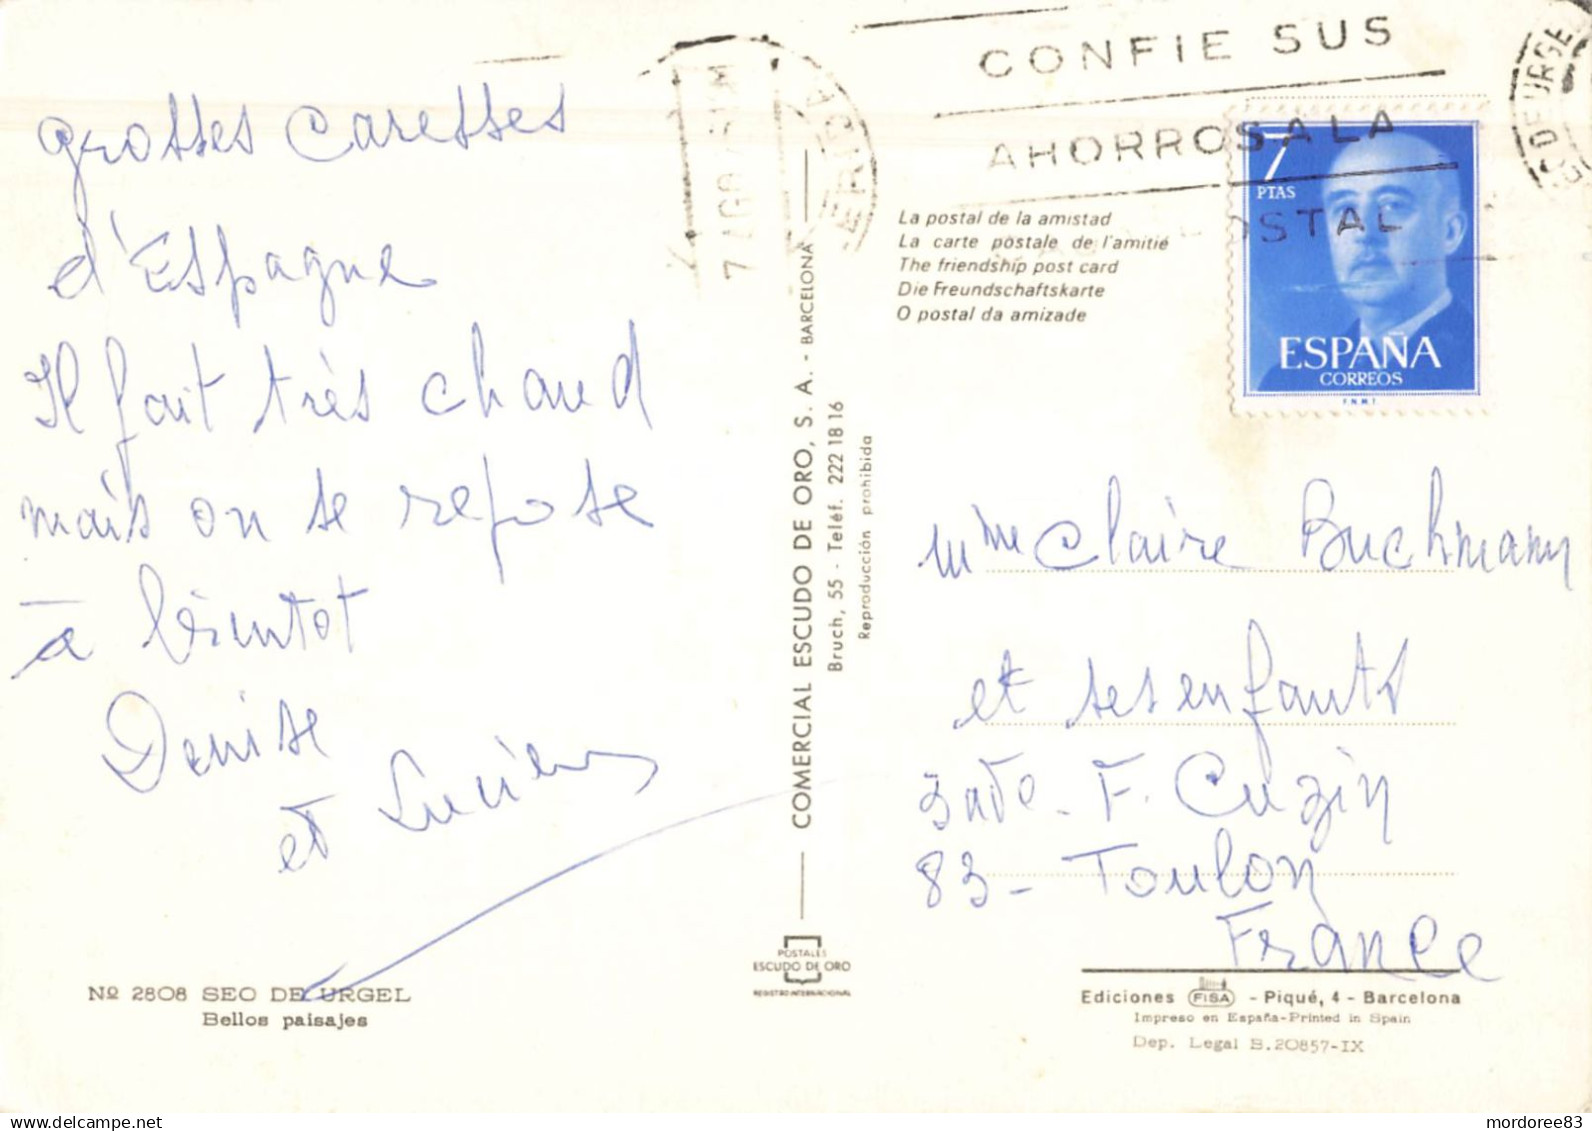 grosses caresses
d'Espagne
Il fait très chaud
mais on se repose
à bientot
Denise
et Lucien
Nº 2808 SEO DE URGEL
Bellos paisajes
COMERCIAL ESCUDO DE ORO, S. A. - BARCELONA
Bruch, 55 - Teléf. 222 18 16
Reproducción prohibida
POSTALES
ESCUDO DE ORO
REGISTRO INTERNACIONAL
CONFIE SUS
AHORROS A LA
POSTAL
7 AGO
DE URGE
La postal de la amistad
La carte postale de l'amitié
The friendship post card
Die Freundschaftskarte
O postal da amizade
7
PTAS
ESPAÑA
CORREOS
F.N.M.T.
Mme Claire Buchmann
et ses enfants
F. Cuzin
83 - Toulon
France
Ediciones FISA - Piqué, 4 - Barcelona
Impreso en España-Printed in Spain
Dep. Legal B. 20857-IX
www.delcampe.net
mordoree83